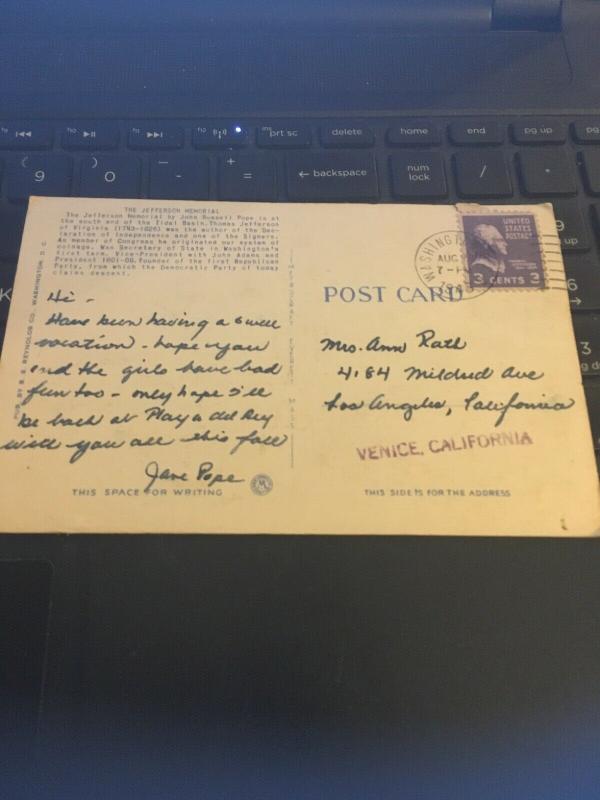 prt sc
delete
home
end
pg up
pg
9
0
-
_
=
+
← backspace
num
lock
/
*
THE JEFFERSON MEMORIAL
The Jefferson Memorial by John Russell Pope is at
the south end of the Tidal Basin. Thomas Jefferson
of Virginia (1743-1826) was the author of the Dec-
laration of Independence and one of the Signers.
As member of Congress he originated our system of
coinage. Was Secretary of State in Washington's
first term. Vice-President with John Adams and
President 1801-08. Founder of the first Republican
Party, from which the Democratic Party of today
claims descent.
REYNOLDS CO., WASHINGTON, D. C.
Hi -
Have been having a swell
vacation - hope you
and the girls have had
fun too - only hope I'll
be back at Playa del Rey
with you all this fall
Jane Pope
THIS SPACE FOR WRITING
WASHING
AUG
7-P
194
UNITED
STATES
POSTAGE
3 CENTS 3
POST CARD
Mrs. Ann Rath
4184 Mildred Ave
Los Angeles, California
VENICE, CALIFORNIA
THIS SIDE IS FOR THE ADDRESS